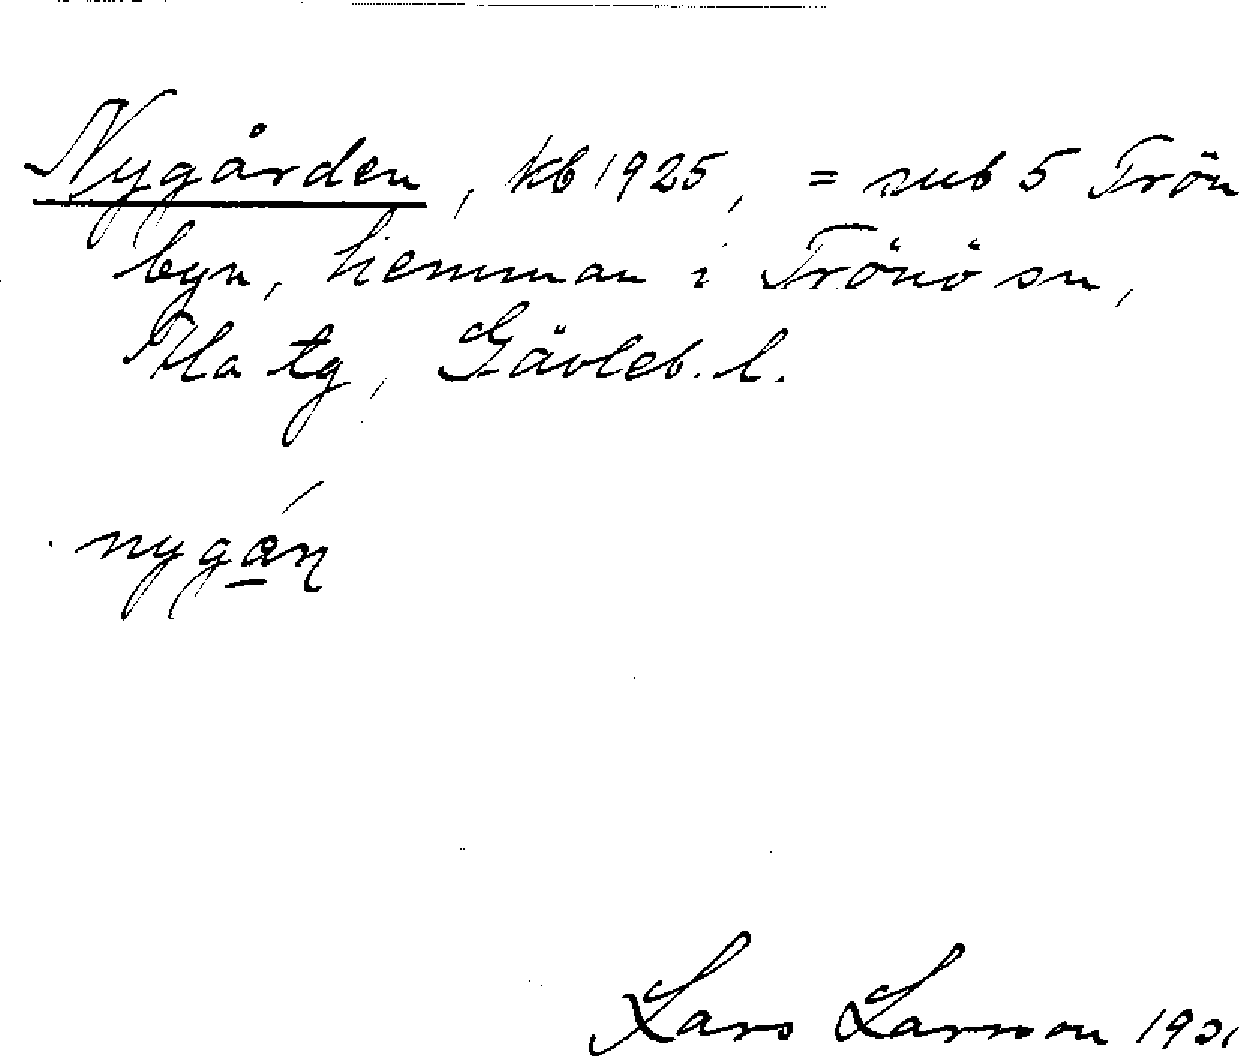 Nygården, kb 1925, = sub 5 Trön
byn, hemman i Trönö sn,
Ala tg, Gävleb. l.
nygán
Lars Larsson